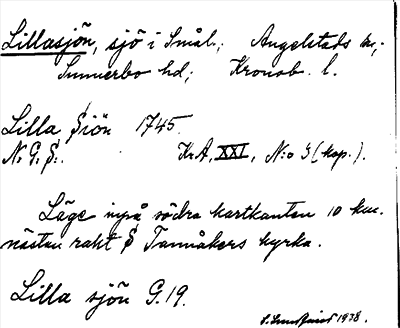 Lillasjön, sjö i Smål., Angelstads sn,
Sunnerbo hd; Kronob. l.
Lilla Siön 1745.
N. G. S:. KrA, XXI, N:o 3 (kop.).
Läge inpå södra kartkanten 10 km.
nästan rakt S Tannåkers kyrka.
Lilla sjön G.19.
1938.